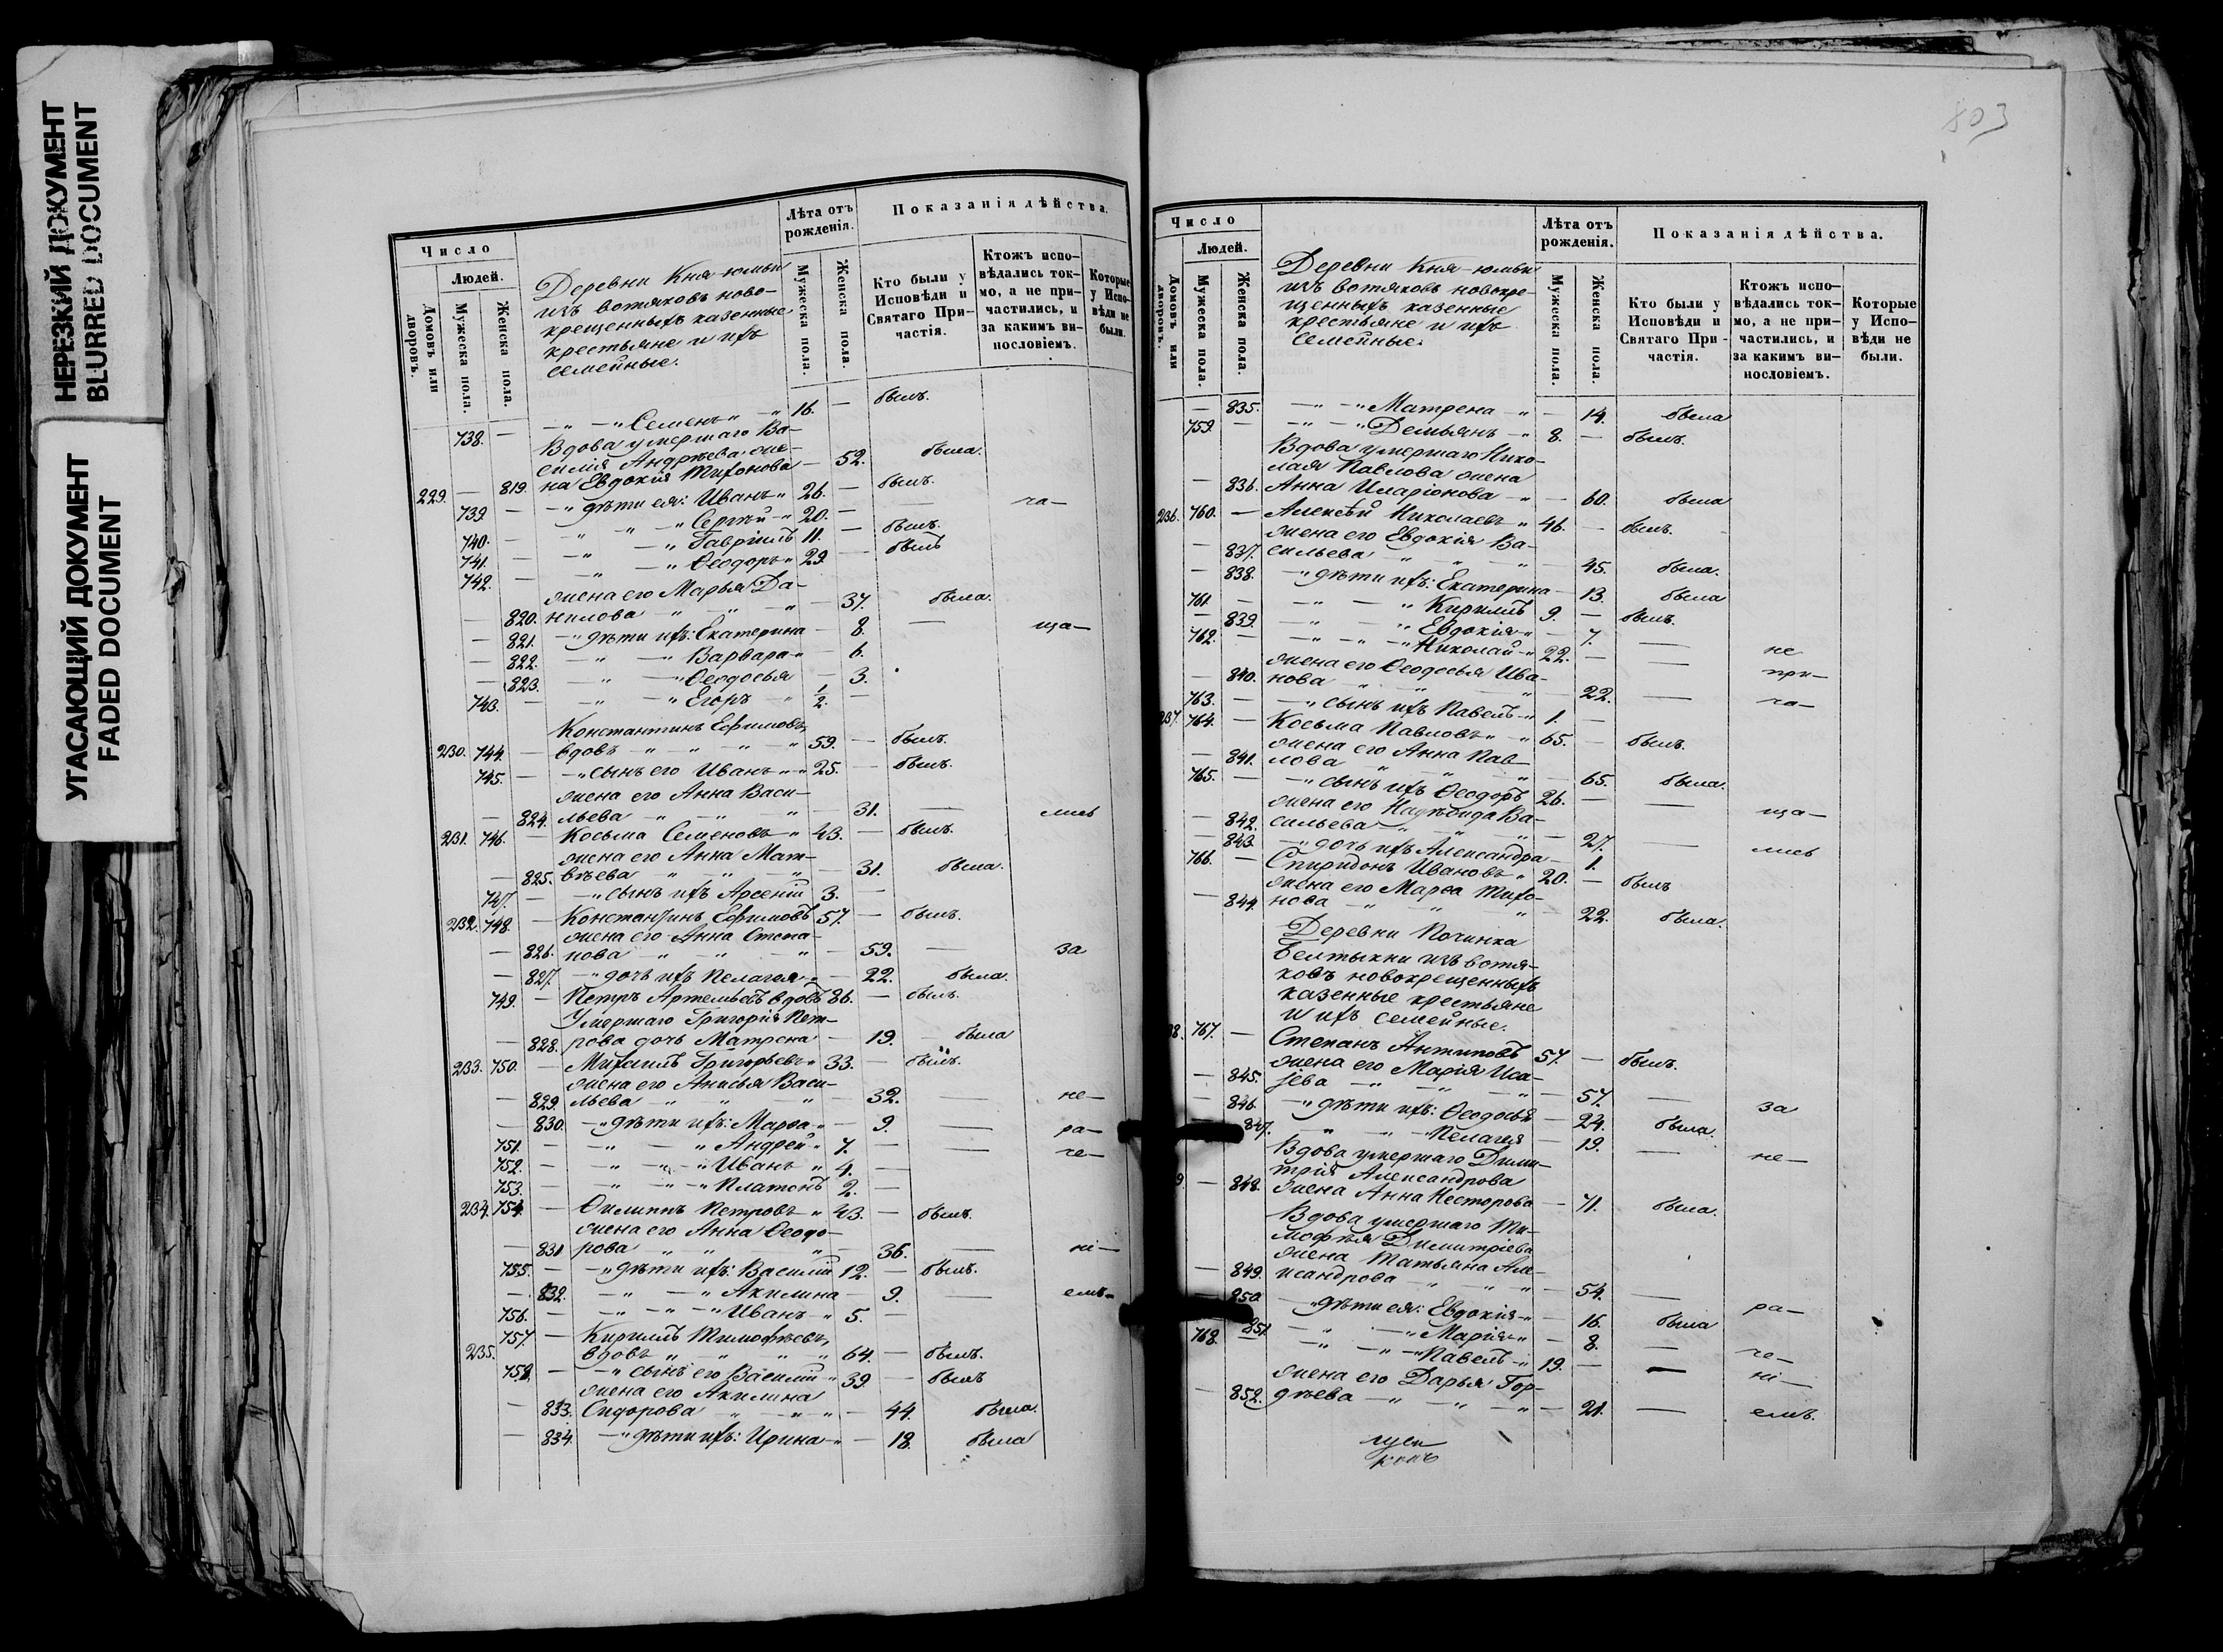 НЕРЕЗКИЙ ДОКУМЕНТ
BLURRED DOCUMENT
УГАСАЮЩИЙ ДОКУМЕНТ
FADED DOCUMENT
Число
Людей.
Домовъ или дворовъ.
Мужеска пола.
Женска пола.
Деревни Кня-юмьи
изъ вотяковъ ново-
крещенныхъ казенные
крестьяне и ихъ
семейные.
Лѣта отъ рожденія.
Мужеска пола.
Женска пола.
Показанія дѣйства.
Кто были у Исповѣди и Святаго При-частія.
Ктожъ испо-вѣдались ток-мо, а не при-частились, и за какимъ ви-нословіемъ.
Которые у Испо-вѣди не были.
738. — —„ —„ Семенъ „ —„ 16. — былъ.
Вдова умершаго Ва-
силія Андреева же-
229. — 819. на Евдокія Тихонова — 52. была.
739 — —„ дѣти ея: Иванъ „ 26. — былъ.
740. — „ —„ Сергѣй „ 20. — — ча—
741. — —„ —„ Гавріилъ 11. — былъ.
742. — —„ —„ Ѳеодоръ „ 29. — былъ
жена его Марья Да-
— 820. нилова „ — „ — „ — 37. была.
— 821. —„ дѣти ихъ: Екатерина — 8. — ща—
— 822. —„ —„ Варвара „ — 6.
— 823. —„ —„ Ѳеодосья — 3.
743. — —„ —„ Егоръ „ 1/2. —
Константинъ Ефимовъ,
230. 744. — вдовъ — „ — „ — „ 59. — былъ.
745. — —„ сынъ его Иванъ „ „ 25. — былъ.
жена его Анна Васи-
— 824. льева — „ — „ — „ — 31. — лись
231. 746. — Косьма Семеновъ „ 43. — былъ.
жена его Анна Мат-
— 825. вѣева „ „ „ — 31. была.
747. — —„ сынъ ихъ Арсеній 3. —
232. 748. — Константинъ Ефимовъ 57. — былъ.
жена его Анна Степа-
— 826. нова „ „ „ — 59. — за
— 827. —„ дочь ихъ Пелагея „ — 22. была.
749. — Петръ Артемьевъ вдовъ 86. — былъ.
Умершаго Григорія Пет-
— 828. рова дочь Матрена — 19. была
233. 750. — Михаилъ Григорьевъ „ 33. — былъ.
жена его Анисья Васи-
— 829. льева „ „ „ — 32. — не—
— 830. —„ дѣти ихъ: Марѳа „ — 9. — ра—
751. — —„ —„ Андрей „ 7. — — че—
752. — —„ —„ Иванъ „ 4. —
753. — —„ —„ Платонъ 2. —
234. 754. — Филиппъ Петровъ „ 43. — былъ.
жена его Анна Ѳеодо-
— 831 рова „ „ „ — 36. — ні—
755. — —„ дѣти ихъ: Василій 12. — былъ.
— 832. —„ —„ Акилина — 9. — емъ.
756. — —„ —„ Иванъ „ 5. —
757. — Кириллъ Тимофѣевъ,
235. вдовъ „ „ „ „ 64. — былъ.
758. — —„ сынъ его Василій „ 39 — былъ
жена его Акилина
— 833. Сидорова „ „ „ — 44. была.
— 834. —„ дѣти ихъ: Ирина „ — 18. была
803
Число
Людей.
Домовъ или дворовъ.
Мужеска пола.
Женска пола.
Деревни Кня-юмьи
изъ вотяковъ новокре-
щенныхъ казенные
крестьяне и ихъ
семейные.
Лѣта отъ рожденія.
Мужеска пола.
Женска пола.
Показанія дѣйства.
Кто были у Исповѣди и Святаго При-частія.
Ктожъ испо-вѣдались ток-мо, а не при-частились, и за какимъ ви-нословіемъ.
Которые у Испо-вѣди не были.
— 835. —„ —„ Матрена „ — 14. была
759. — —„ —„ Демьянъ „ 8. — былъ.
Вдова умершаго Нико-
лая Павлова жена
— 836. Анна Иларіонова „ — 60. была
236. 760. — Алексѣй Николаевъ „ 46. — былъ.
жена его Евдокія Ва-
— 837. сильева „ „ „ — 45. была.
— 838. —„ дѣти ихъ: Екатерина — 13. была
761. — —„ —„ Кириллъ 9. — былъ.
— 839. —„ —„ Евдокія „ — 7. — не
762. — —„ —„ Николай „ 22. — — при—
жена его Ѳеодосья Ива-
— 840. нова „ „ „ — 22. — ча—
763. — —„ сынъ ихъ Павелъ „ 1. —
237. 764. — Косьма Павловъ „ „ 65. — былъ.
жена его Анна Пав-
— 841. лова „ „ — 65. была.
765. — —„ сынъ ихъ Ѳеодоръ 26. — — ща—
жена его Надѣжда Ва-
— 842. сильева „ „ — 27. — лись
— 843. —„ дочь ихъ Александра — 1.
766. — Спиридонъ Ивановъ „ 20. — былъ
жена его Марѳа Тихо-
— 844. нова „ „ „ — 22. была.
Деревни Починка
Белтыкни изъ вотя-
ковъ новокрещенныхъ
казенные крестьяне
и ихъ семейные.
767. — Степанъ Антиповъ 57. — былъ.
жена его Марія Иса-
— 845. — 57. — за
— 846. —„ дѣти ихъ: Ѳеодосья — 24. была.
847. „ —„ Пелагея — 19. — не—
Вдова умершаго Дими-
трія Александрова
— 848. жена Анна Несторова — 71. была.
Вдова умершаго Ти-
мофѣя Димитріева
жена Татьяна Але-
— 849. ксандрова „ „ „ — 54. — ра—
— 850 —„ дѣти ея: Евдокія „ — 16. была
851 —„ —„ Марія „ — 8. — че—
768. — —„ —„ Павелъ „ 19. — — ні—
жена его Дарья Гор-
— 852. дѣева „ „ „ — 21. — емъ.